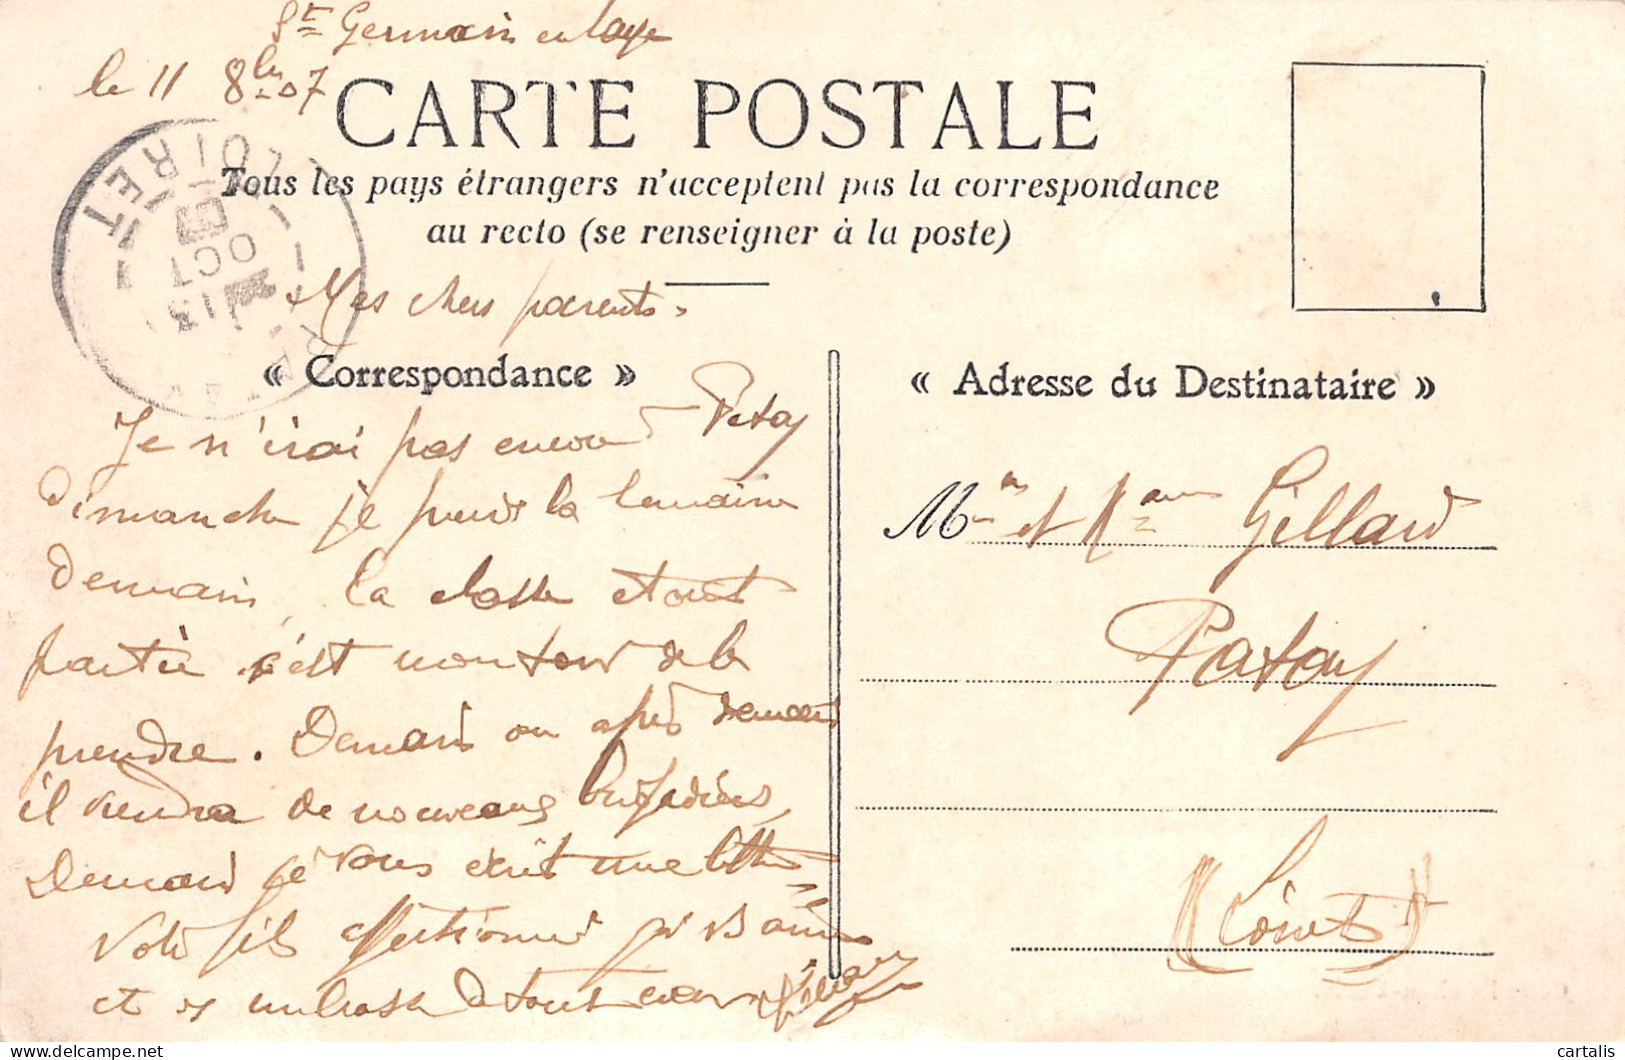 St Germain en Laye
le 11 8bre 07
CARTE POSTALE
Tous les pays étrangers n'acceptent pas la correspondance
au recto (se renseigner à la poste)
LOIRET
OCT
13
Mes chers parents.
« Correspondance »
Je n'irai pas encore Patay
Dimanche je prends la semaine
Demain, la classe étant
partie c'est mon tour de la
prendre. Demain ou après demain
il viendra de nouveaux brigadiers,
Demain je vous écris une lettre
Votre fils affectionné qui vs aime
et vs embrasse de tout cœur
« Adresse du Destinataire »
Mr et Mme Gillard
Patay
(Loiret)
cartalis